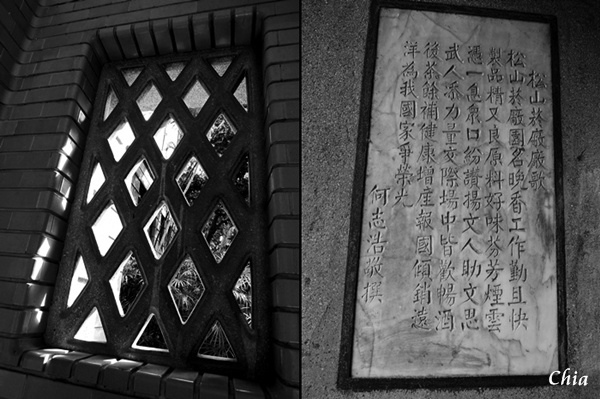 松山菸廠廠歌
松山菸廠園名晚香工作勤且快
製品精又良原料好味芬芳煙雲
憑一眾口紛讚揚文人助文思
武人添力量交際場中皆歡暢酒
後茶餘補健康增產報國傾銷遠
洋為我國家爭榮光
何志浩敬撰
Chia